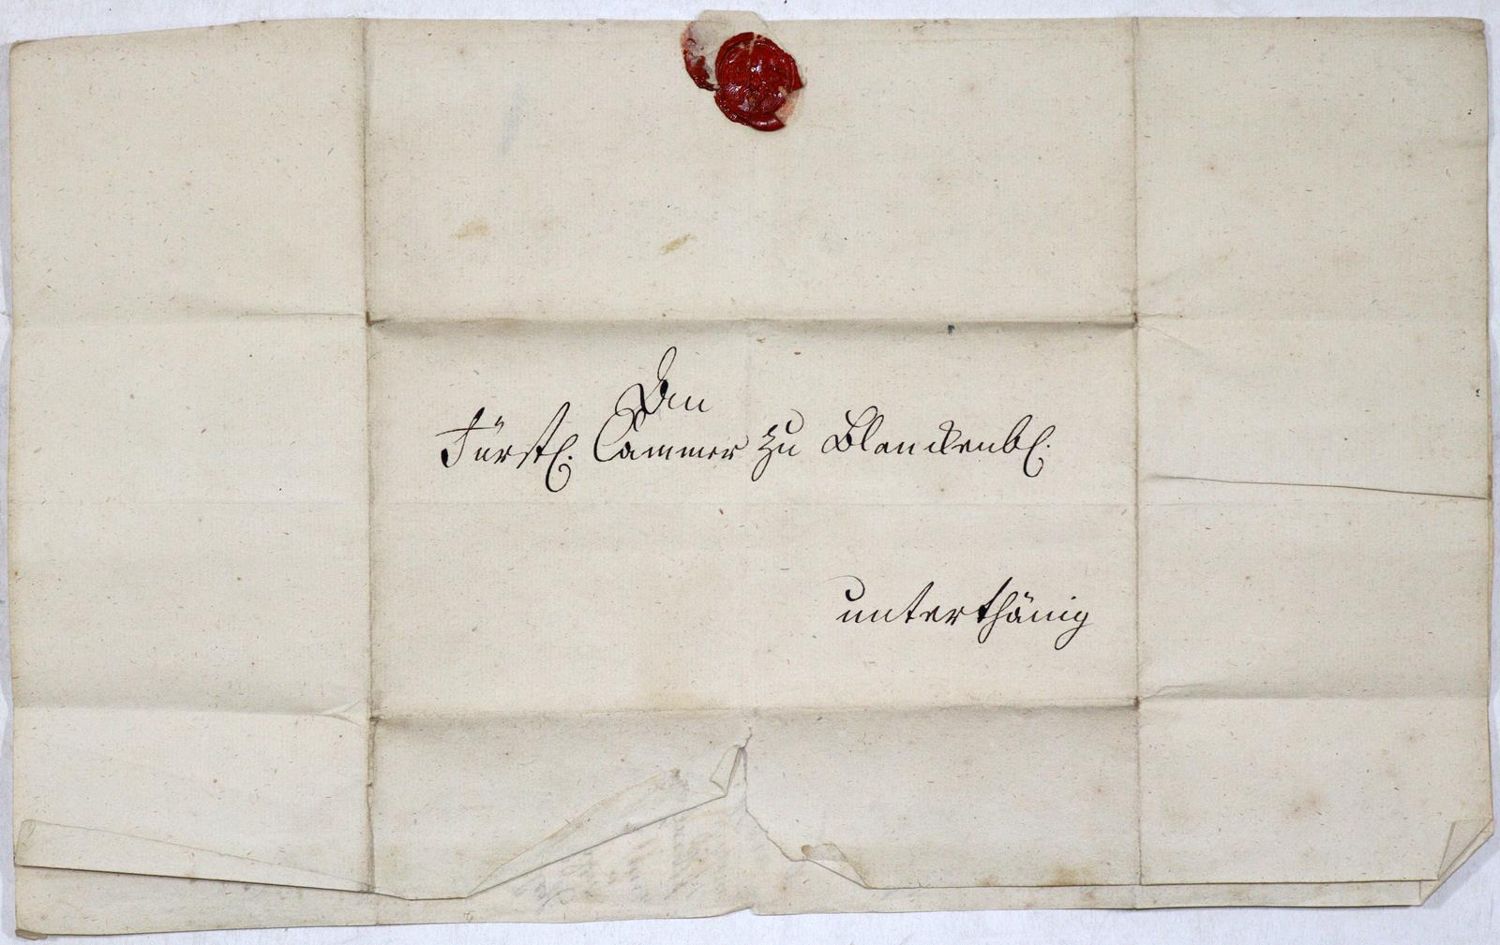 An
Fürstl. Cammer zu Blanckenb.
unterthänig